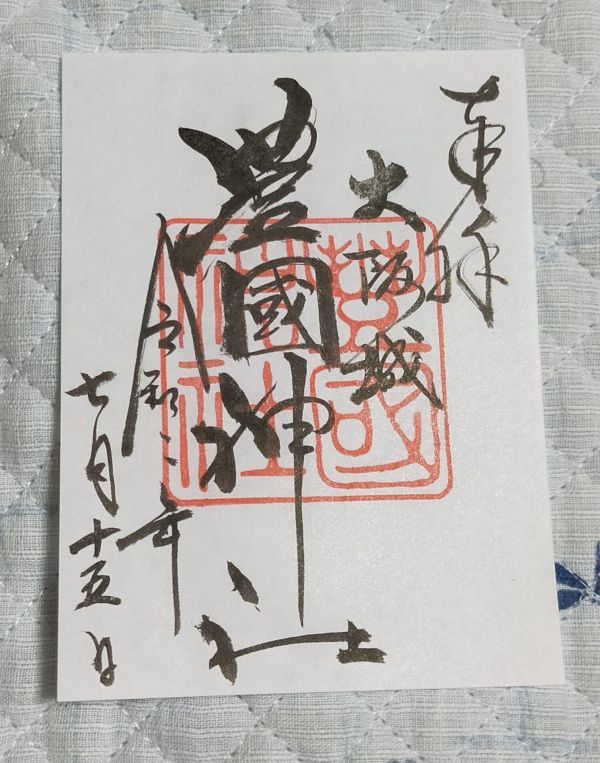 奉拝
大阪城
豊國神社
令和二年
七月十五日
豐國
神社